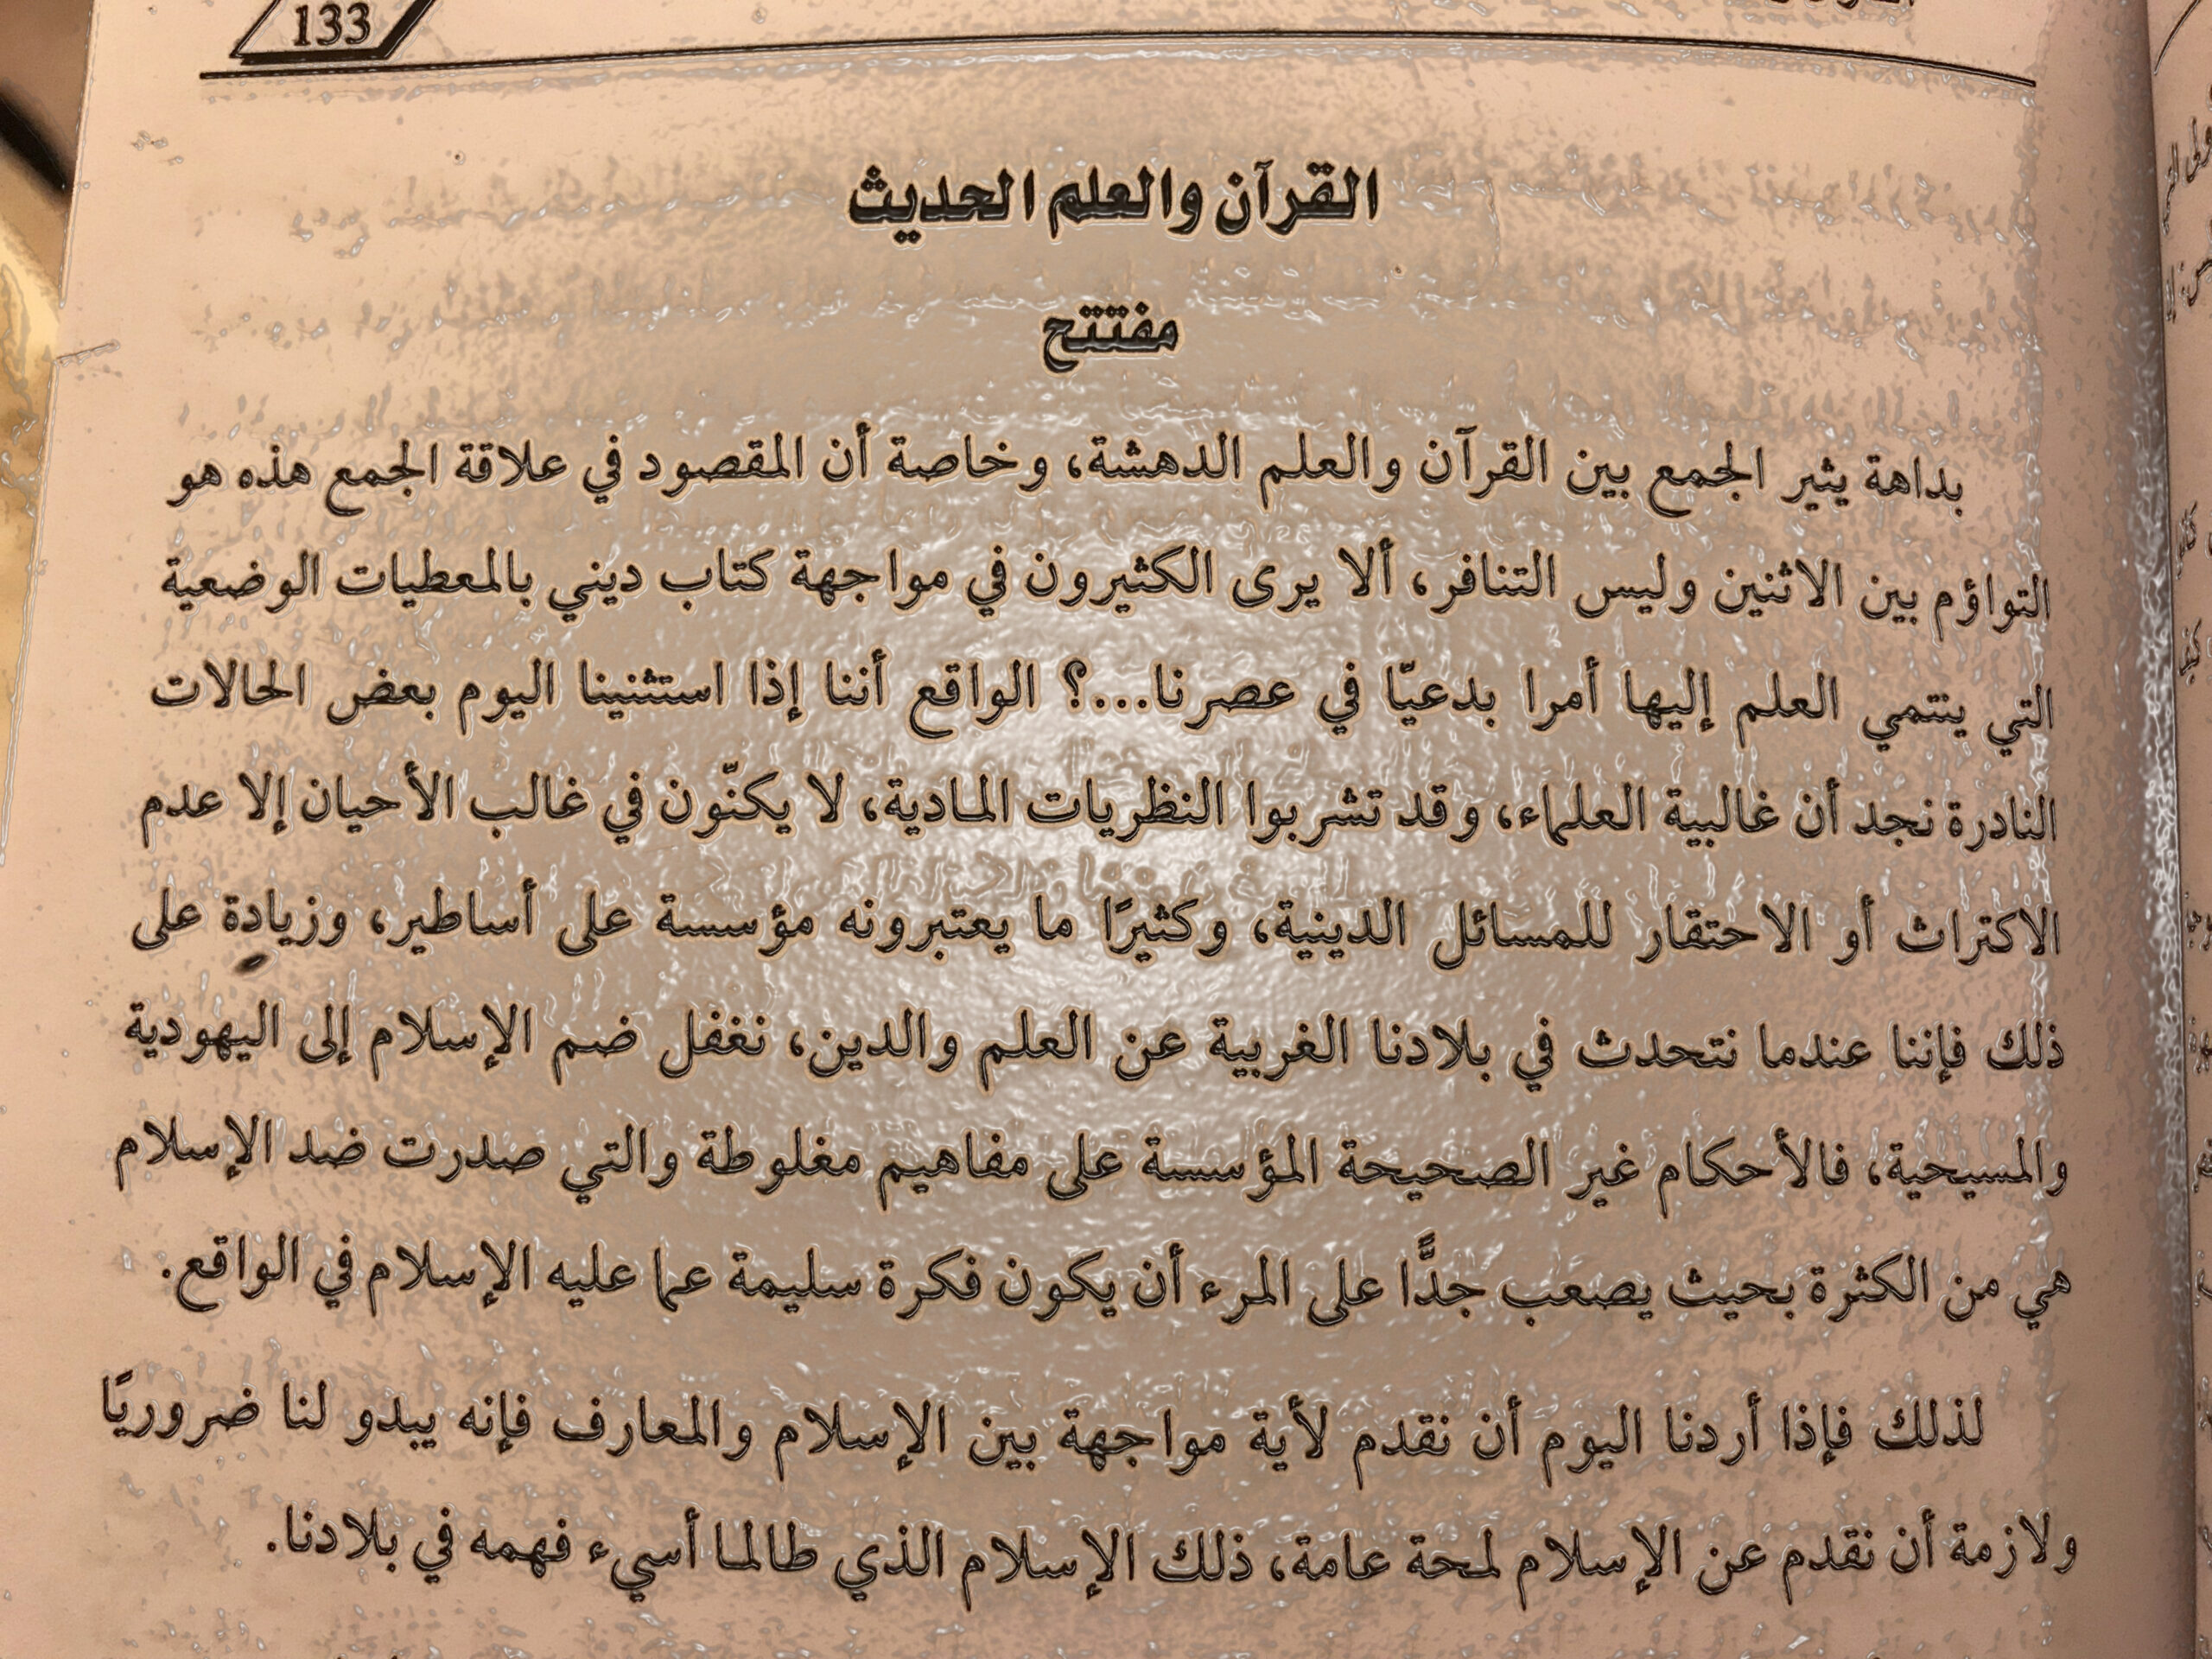 133
القرآن والعلم الحديث
مفتتح
بداهة يثير الجمع بين القرآن والعلم الدهشة، وخاصة أن المقصود في علاقة الجمع هذه هو
التواؤم بين الاثنين وليس التنافر، ألا يرى الكثيرون في مواجهة كتاب ديني بالمعطيات الوضعية
التي ينتمي العلم إليها أمرا بدعيّا في عصرنا...؟ الواقع أننا إذا استثنينا اليوم بعض الحالات
النادرة نجد أن غالبية العلماء، وقد تشربوا النظريات المادية، لا يكنّون في غالب الأحيان إلا عدم
الاكتراث أو الاحتقار للمسائل الدينية، وكثيرًا ما يعتبرونه مؤسسة على أساطير، وزيادة على
ذلك فإننا عندما نتحدث في بلادنا الغربية عن العلم والدين، نغفل ضم الإسلام إلى اليهودية
والمسيحية، فالأحكام غير الصحيحة المؤسسة على مفاهيم مغلوطة والتي صدرت ضد الإسلام
هي من الكثرة بحيث يصعب جدًّا على المرء أن يكون فكرة سليمة عما عليه الإسلام في الواقع.
لذلك فإذا أردنا اليوم أن نقدم لأية مواجهة بين الإسلام والمعارف فإنه يبدو لنا ضروريًا
ولازمة أن نقدم عن الإسلام لمحة عامة، ذلك الإسلام الذي طالما أسيء فهمه في بلادنا.